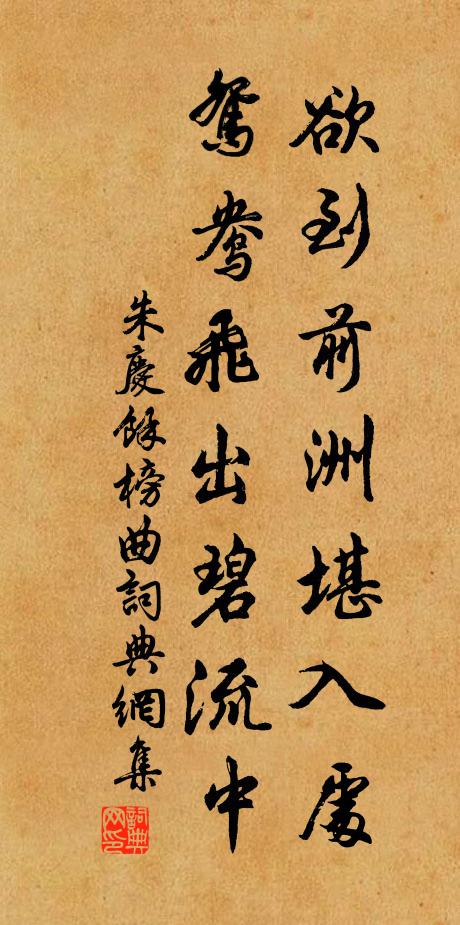 欲到前洲堪入處
鴛鴦飛出碧流中
朱慶餘榜曲詞典網集
詞典网印